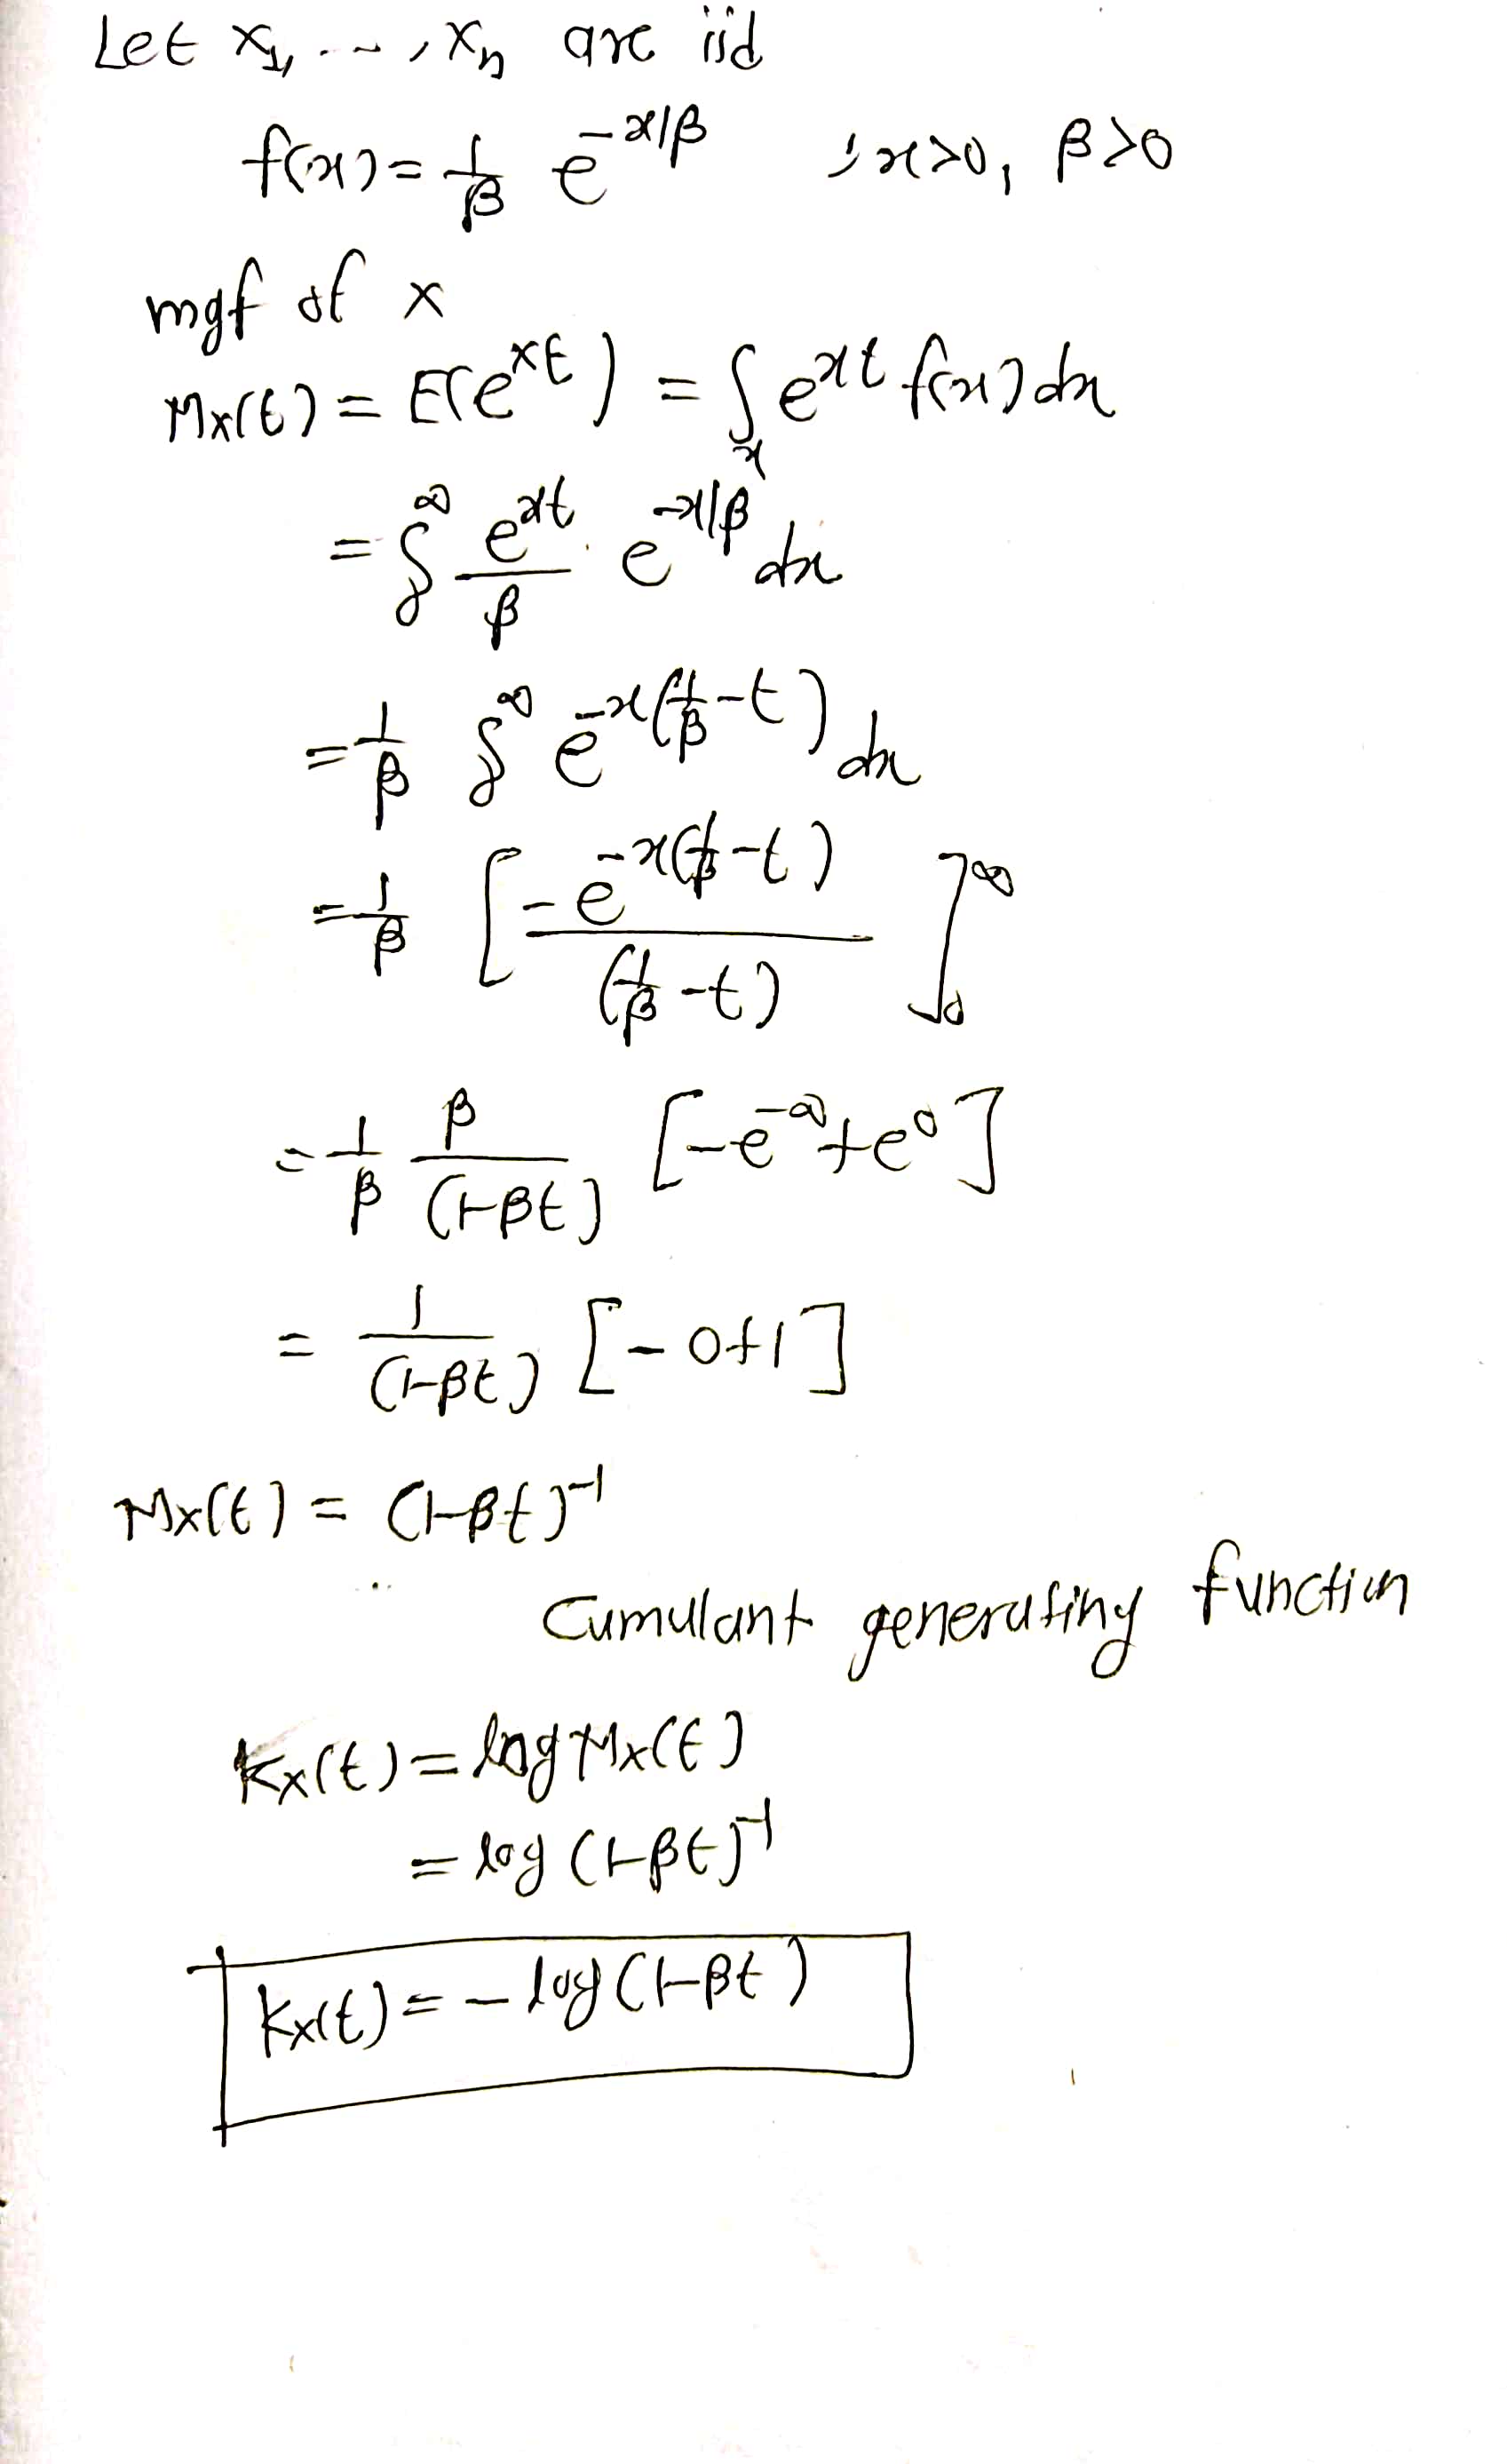 Let x₁, ..., xₙ are iid
f(x) = 1/β e^(-x/β) ; x>0, β>0
mgf of x
Mx(t) = E(e^(xt)) = ∫ₓ e^(xt) f(x) dx
= ∫₀^∞ e^(xt)/β · e^(-x/β) dx
= 1/β ∫₀^∞ e^(-x(1/β - t)) dx
= 1/β [ -e^(-x(1/β - t)) / (1/β - t) ]₀^∞
= 1/β β/(1-βt) [-e^(-∞) + e^0]
= 1/(1-βt) [-0+1]
Mx(t) = (1-βt)^(-1)
Cumulant generating function
Kx(t) = log Mx(t)
= log (1-βt)^(-1)
Kx(t) = - log (1-βt)